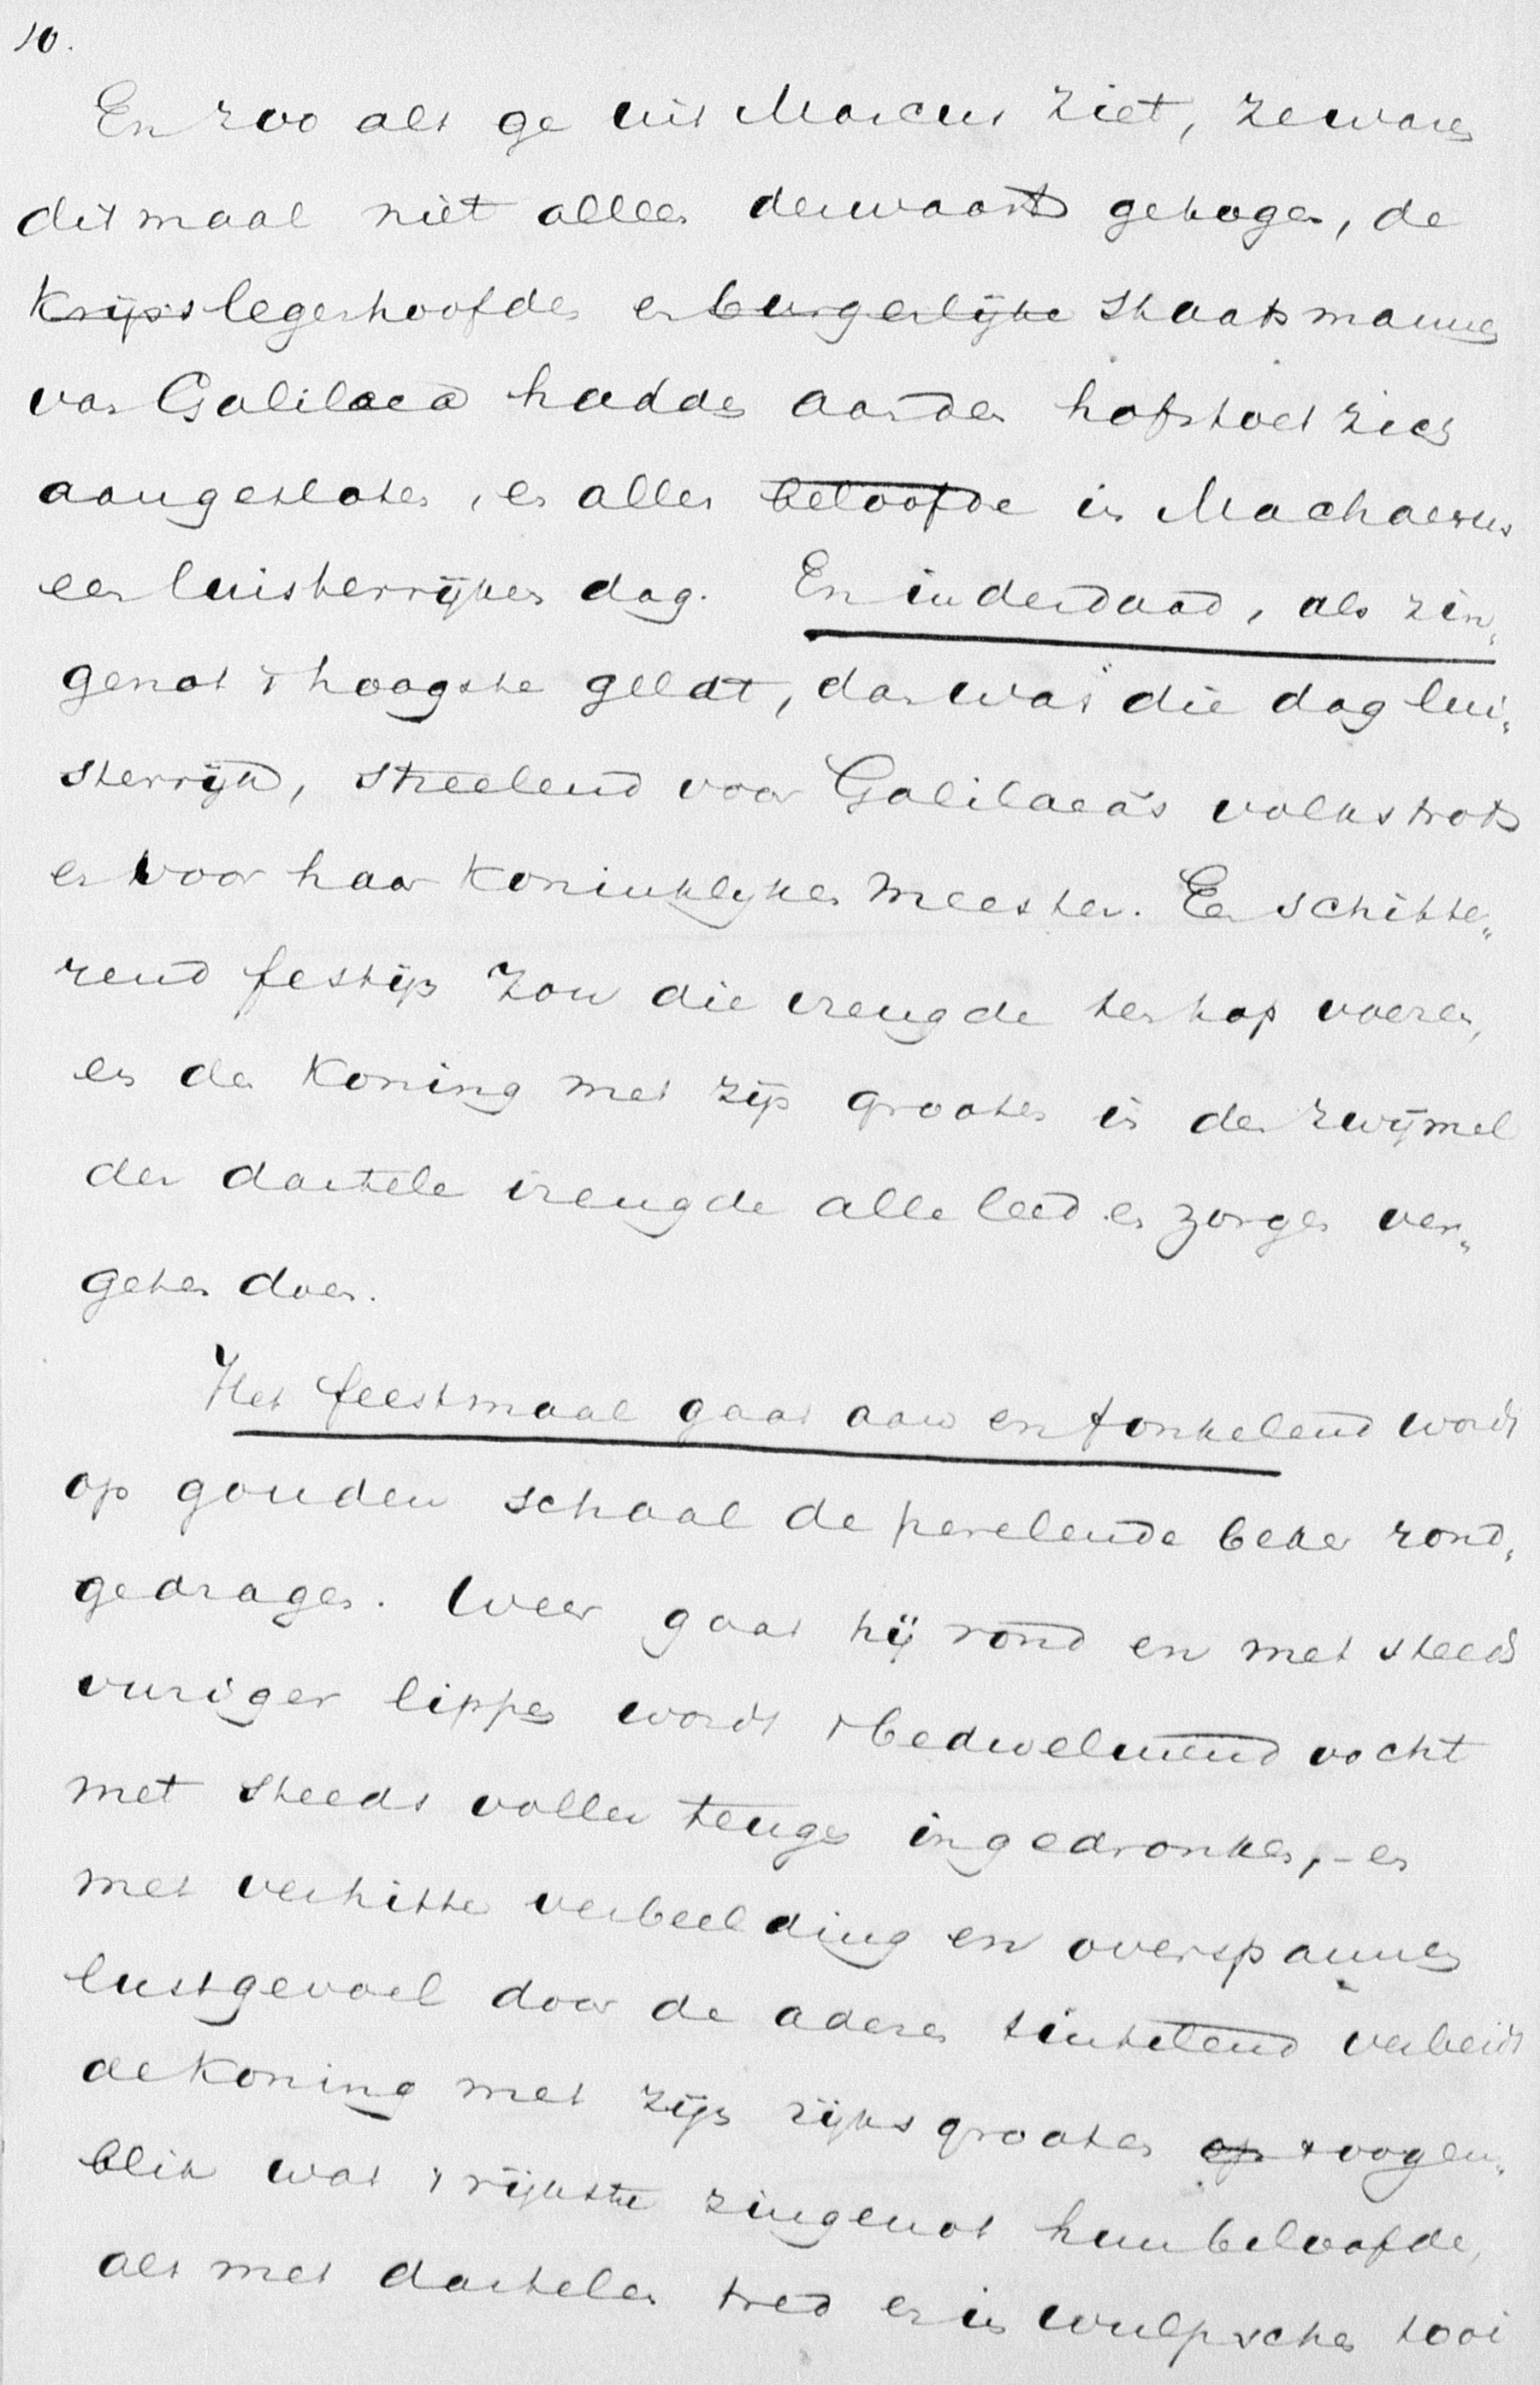 10.
En zoo als ge uit Marcus ziet, ze waren
ditmaal niet alleen derwaarts getogen, de
krijgs legerhoofden en burgerlijke staatsmannen
van Galilaea hadden aan den hofstoet zich
aangesloten, en alles beloofde in Machaerus
een luisterrijken dag. En inderdaad, als zin„
genot 't hoogste geldt, dan was die dag lui„
sterrijk, streelend voor Galilaea's volkstrots
en voor haar koninklijken meester. Een schitte„
rend festijn zou die vreugde ten top voeren,
en den Koning met zijn grooten in den zwijmel
der dartele vreugde alle leed en zorgen ver„
geten doen.
Het feestmaal gaat aan en fonkelend wordt
op gouden schaal de perelende beker rond„
gedragen. Weer gaat hij rond en met steeds
vuriger lippen wordt 't bedwelmend vocht
met steeds voller teugen ingedronken, – en
met verhitte verbeelding en overspannen
lustgevoel door de aderen tintelend verbeidt
de Koning met zijn rijksgrooten op 't oogen„
blik wat 't rijkste zingenot hun beloofde,
als met dartelen tred en in wulpschen tooi